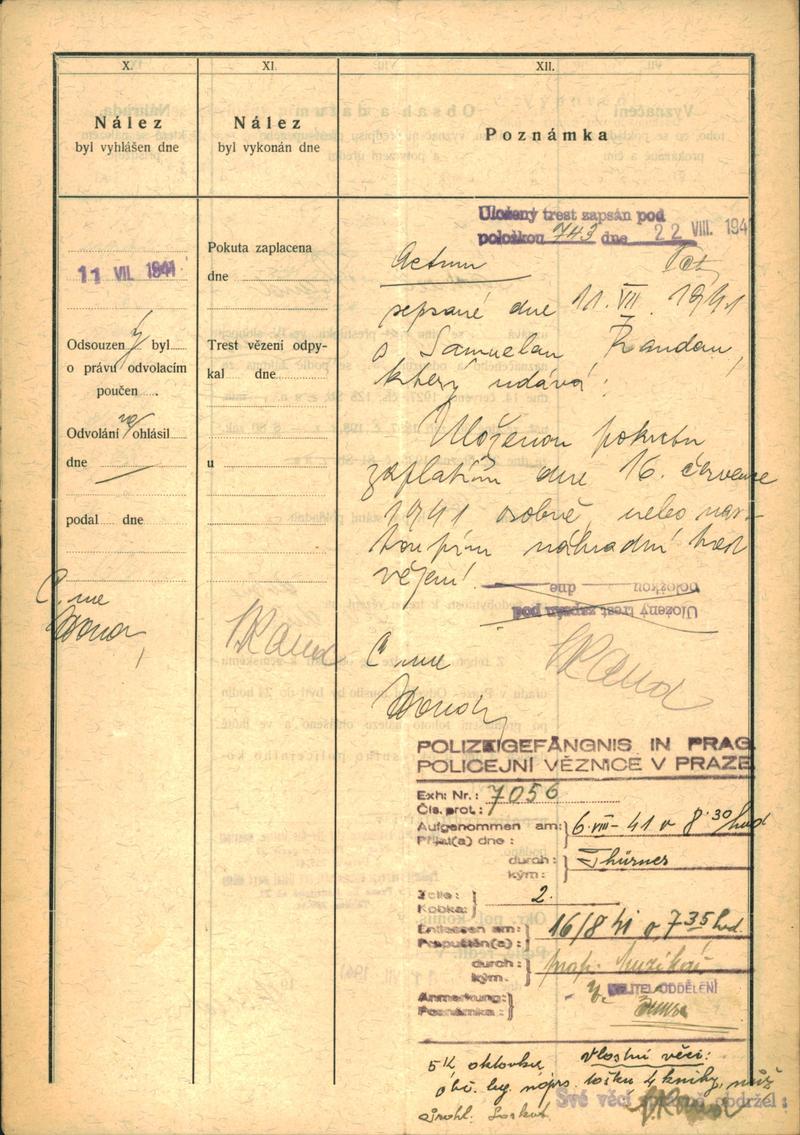 X.
XI.
XII.
Nález
byl vyhlášen dne
Nález
byl vykonán dne
Poznámka
Uložený trest zapsán pod
položkou 743 dne 22 VIII. 194
11 VII. 1941
Odsouzen ý byl
o právu odvolacím
poučen
Odvolání ohlásil
dne
podal dne
C. me
Pokuta zaplacena
dne
Trest vězení odpy-
kal dne
u
Actum
sepsané dne 11. VII. 1941
s Samuelem
který udává:
Uloženou pokutu
zaplatím dne 16. července
1941 osobně, nebo nas-
toupím náhradní trest
vězení.
položkou dne
Uložený trest zapsán pod
C. me
POLIZEIGEFÄNGNIS IN PRAG
POLICEJNÍ VĚZNICE V PRAZE
Exh: Nr.: 7056
Čís. prot.:
Aufgenommen am: 6. VIII - 41 v 8 30 hod
Přijat(a) dne:
durch: Thürner
kým:
Zelle: 2.
Kobka:
Entlassen am: 16/8 41 v 7 35 hod.
Propuštěn(a):
durch: prap.
kým.
VELITEL ODDĚLENÍ
Anmerkung:
Poznámka:
Vlastní věci:
obč. leg. náprs. tašku 4 knihy, nůž
Své věci správně podržel:
prohl.